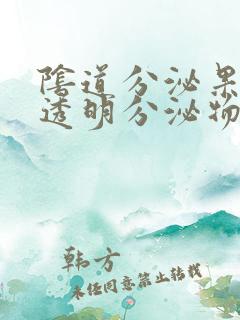 陰道分泌果
透明分泌物
韩方
未经同意禁止转载